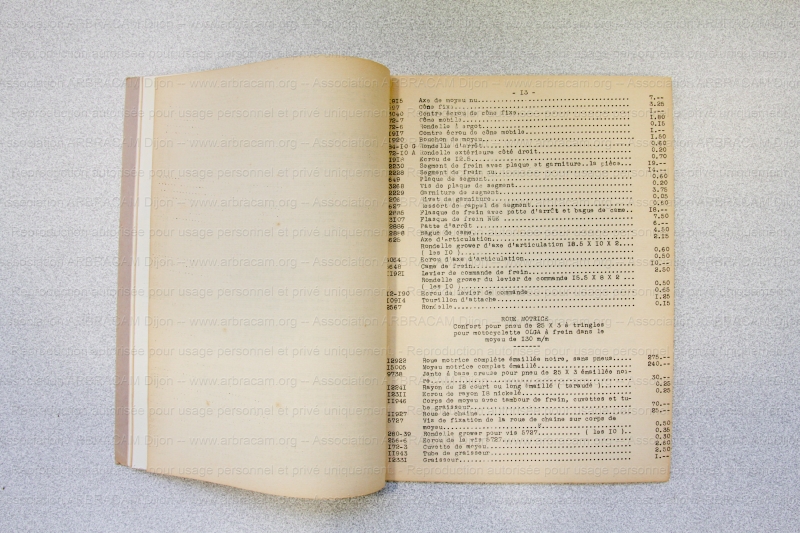 - 13 -
Axe de moyeu nu 7.--
Cône fixe 3.25
Contre écrou de cône fixe 1.--
Cône mobile 1.80
Rondelle à ergot 0.15
Contre écrou de cône mobile 1.--
Bouchon de moyeu 1.50
Rondelle d'arrêt 0.60
72-10 A Rondelle extérieure côté droit 0.20
Ecrou de 12.5 0.70
2230 Segment de frein avec plaque et garniture..la pièce 19.--
2228 Segment de frein nu 14.--
649 Plaque de segment 0.60
3268 Vis de plaque de segment 0.20
2229 Garniture de segment 3.75
206 Rivet de garniture 0.05
627 Ressort de rappel de segment 0.50
2888 Flasque de frein avec patte d'arrêt et bague de came 18.--
3107 Flasque de frein nue 7.50
2886 Patte d'arrêt 6.--
Bague de came 4.50
625 Axe d'articulation 2.15
Rondelle grower d'axe d'articulation 12.5 X 10 X 2
( les 10 ) 0.60
Ecrou d'axe d'articulation 0.50
Came de frein 10.--
1192I Levier de commande de frein 2.50
Rondelle grower du levier de commande 15.5 X 8 X 2
( les 10 ) 0.50
12-190 Ecrou de levier de commande 0.65
10914 Tourillon d'attache 1.25
2567 Rondelle 0.15
ROUE MOTRICE
Confort pour pneu de 25 X 3 à tringles
pour motocyclette OLGA à frein dans le
moyeu de 130 m/m
-------
12922 Roue motrice complète émaillée noire, sans pneus 275.--
13005 Moyeu motrice complet émaillé 240.--
9738 Jante à base creuse pour pneu de 25 X 3 émaillée noi-
re 30.--
1224I Rayon de 18 court ou long émaillé ( taraudé ) 0.25
1231I Ecrou de rayon 18 nickelé 0.25
11946 Corps de moyeu avec tambour de frein, cuvettes et tu-
be graisseur 70.--
11927 Roue de chaîne 25.--
5727 Vis de fixation de la roue de chaîne sur corps de
moyeu 0.50
280-39 Rondelle grower pour vis 5727 ( les 10 ) 0.35
256-6 Ecrou de la vis 5727 0.30
172-3 Cuvette de moyeu 2.60
11943 Tube de graisseur 2.50
12331 Graisseur 1.--
ARBRACAM Dijon – www.arbracam.org – Association ARBRACAM Dijon – www.arbracam.org
Reproduction autorisée pour usage personnel et privé uniquement